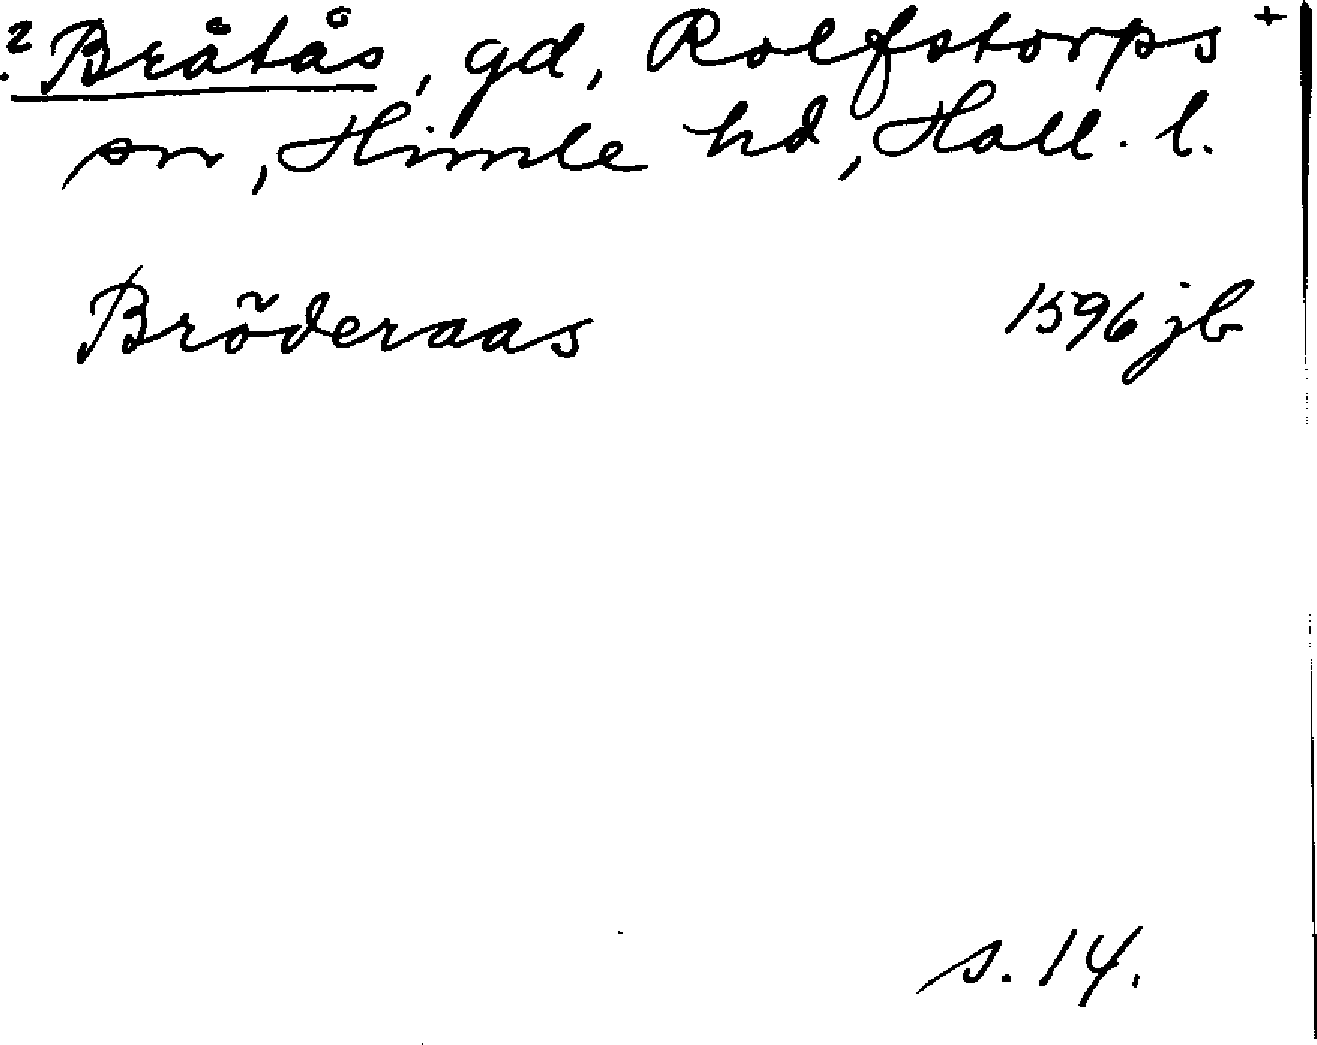 ? Bråtås, gd, Rolfstorps +
sn, Himle hd, Hall. l.
Brõderaas 1596 jb
s. 14.